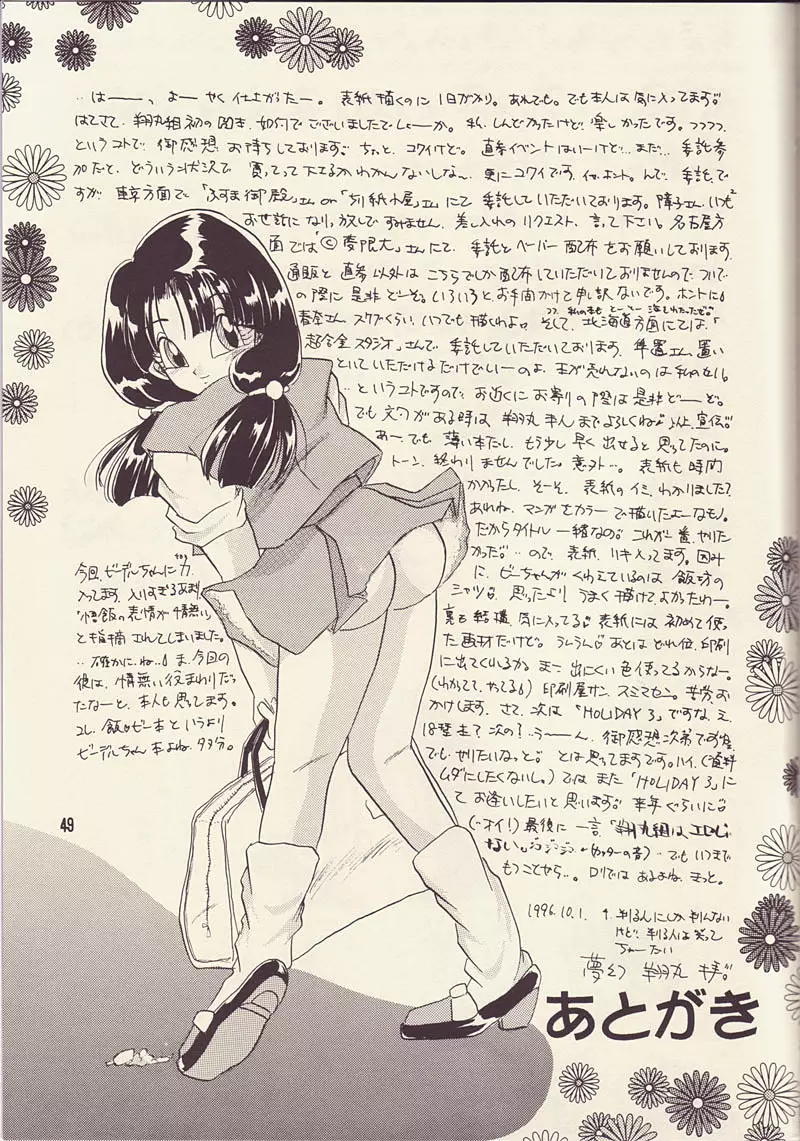 ‥はーーっ、よーやく仕上がったー。表紙描くのに1日がかり。あれでも。でも本人は気に入ってます。
はてさて、翔丸組初の 本、如何でございましたでしょーか。私、しんどかったけど、楽しかったです。フフフフ、
というコトで、御感想お待ちしております。ちょっと、コワイけど。直参イベントはいーけど…また…委託参
加だと、どういう状況で買って下さるかわかんないしな〜、更にコワイです。イヤ、ホント。んで、委託で
すが東京方面で「ふすま御殿」さん 「切紙小屋」さんにて委託していただいております。障子さん、いつも
お世話になりっ放しですみません、差し入れのリクエスト、言って下さい。名古屋方
面では「©夢限大」さんにて、委託とペーパー配布をお願いしております。
通販と直参以外はこちらでしか配布していただいておりませんので、ついで
の際に是非どーぞ。いろいろとお手間かけて申し訳ないです。ホントに。
春奈さん、スケブくらい、いつでも描くわよ。そして、北海道方面にては、「
超合金スタジオ」さんで委託していただいております。隼置さん、置い
といていただけるだけでいーのよ、本が売れないのは私のせい。
‥というコトですので、お近くにお寄りの際は是非どーぞ。
でも文句がある時は、翔丸 まんまでよろしくね。以上、宣伝。
あー、でも薄い本だし、もう少し早く出せると思ってたのに。
トーン、終わりませんでした。意外…。表紙も時間
かかったし、そーそ、表紙のイミ、わかりました?
あれね、マンガをカラーで描いたよーなモノ。
だからタイトル一緒なの。これが一番、やりた
かった。‥ので、表紙、リキ入ってます。因み
に、ビーちゃんがくわえているのは飯坊の
シャツ。思ったよりうまく描けて、よかったわー。
裏も結構、気に入ってる。表紙には初めて使っ
た画材だけど。うふふふ。あとはどれ位、印刷
に出てくれるか。まー出にくい色使ってるからなー。
(わかってて、やってる)印刷屋サン、スミマセン。苦労お
かけします。さて、次は「HOLIDAY 3」ですな。え、
18禁 ? 次の? うーーん、御感想次第です
でも、やりたいなっと。とは思ってますです。ハイ。(資料
ムダにしたくないし。)では また「HOLIDAY 3」に
てお逢いしたいと思います。来年ぐらいに。
(オイ!)最後に一言、「翔丸組は、エロじゃ
ない。」ジジジジー(カッターの音)‥でもいつまで
もつことやら‥。ロリではあるよね、きっと。
今回、ビーデルちゃんに力
入ってます。入りすぎるあまり、
「悟飯の表情が情無い」
と指摘されてしまいました。
‥確かに、ね…。ま、今回の
彼は、情無い役まわりだっ
たなーと、本人も思ってます。
コレ、飯&ビー本というより
ビーデルちゃん本よね、多分。
1996.10.1. 判る人にしか判んない
けど、判る人は笑って
ちょーだい
夢幻 翔丸 拝
あとがき
49